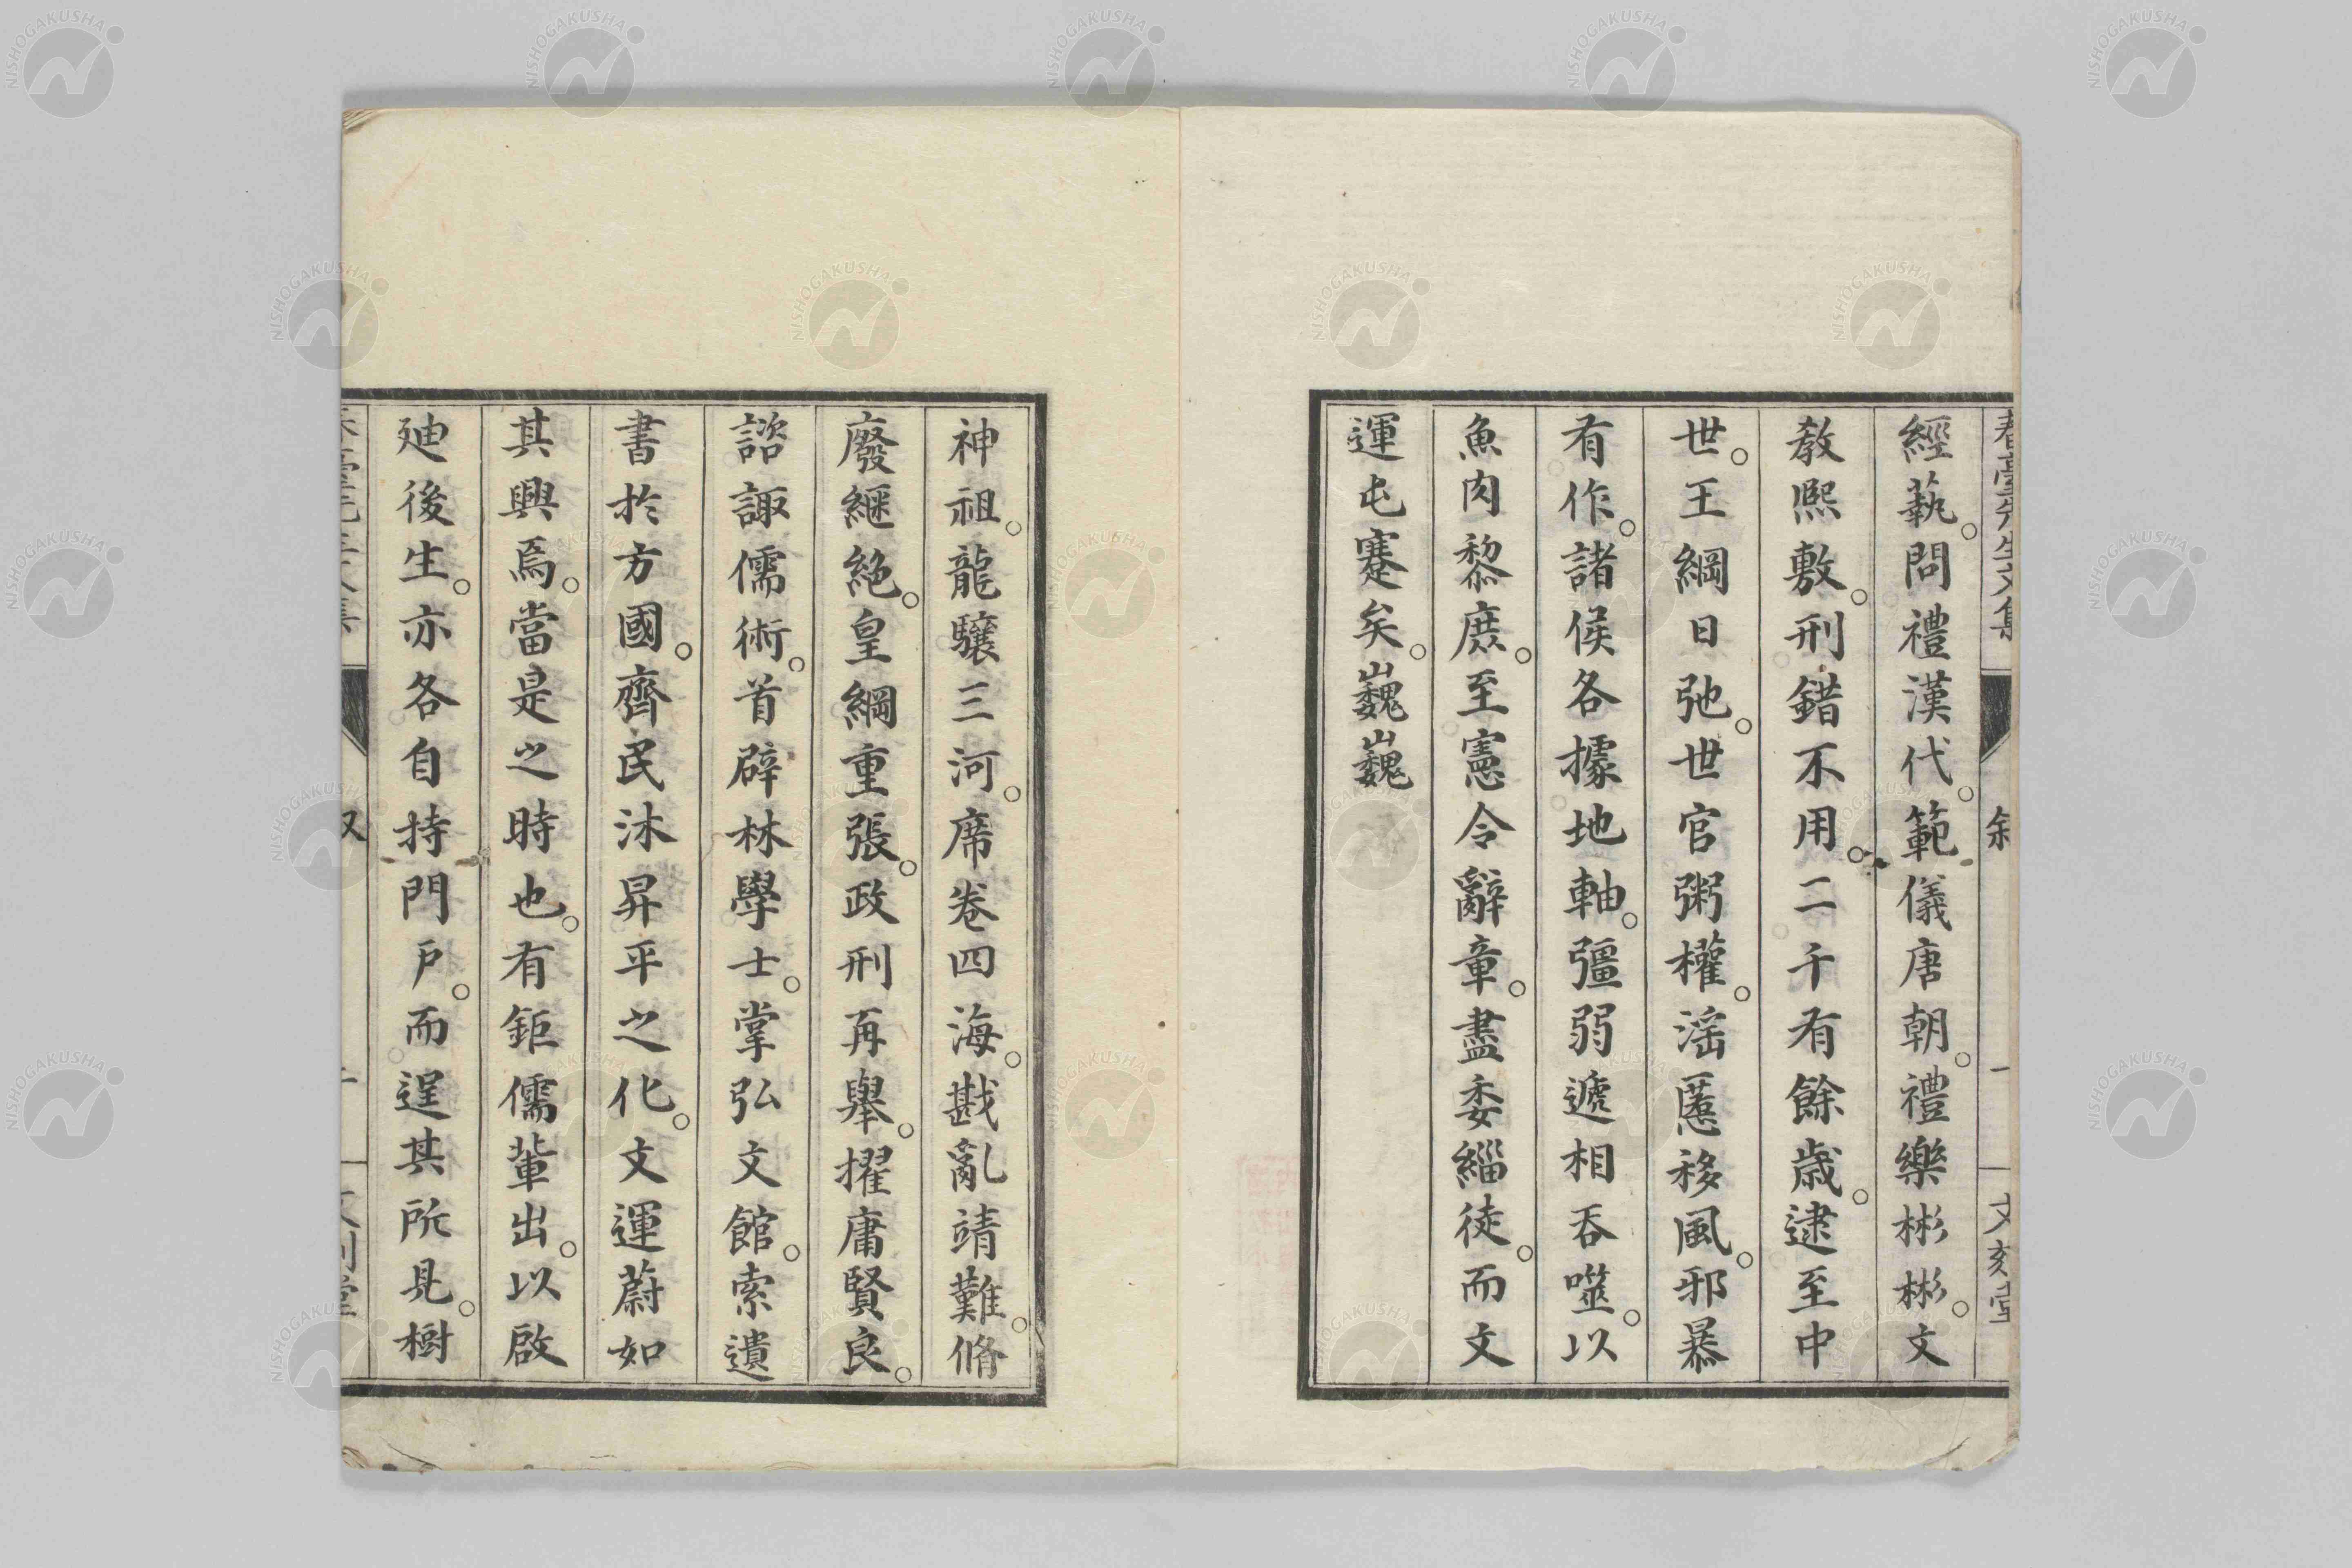 經藝。問禮漢代。範儀唐朝。禮樂彬彬。文
教熙敷。刑錯不用。二千有餘歲。逮至中
世。王綱日弛。世官粥權。滛慝移風。邪暴
有作。諸侯各據地軸。彊弱遞相吞噬。以
魚肉黎庶。至憲令辭章。盡委緇徒。而文
運屯蹇矣。巍巍
神祖。龍驤三河。席卷四海。戡亂靖難。脩
廢継絶。皇綱重張。政刑再舉。擢庸賢良。
諮諏儒術。首辟林學士。掌弘文館。索遺
書於方國。齊民沐昇平之化。文運蔚如
其興焉。當是之時也。有鉅儒輩出。以啟
廸後生。亦各自持門戶。而逞其所見。樹
NISHOGAKUSHA